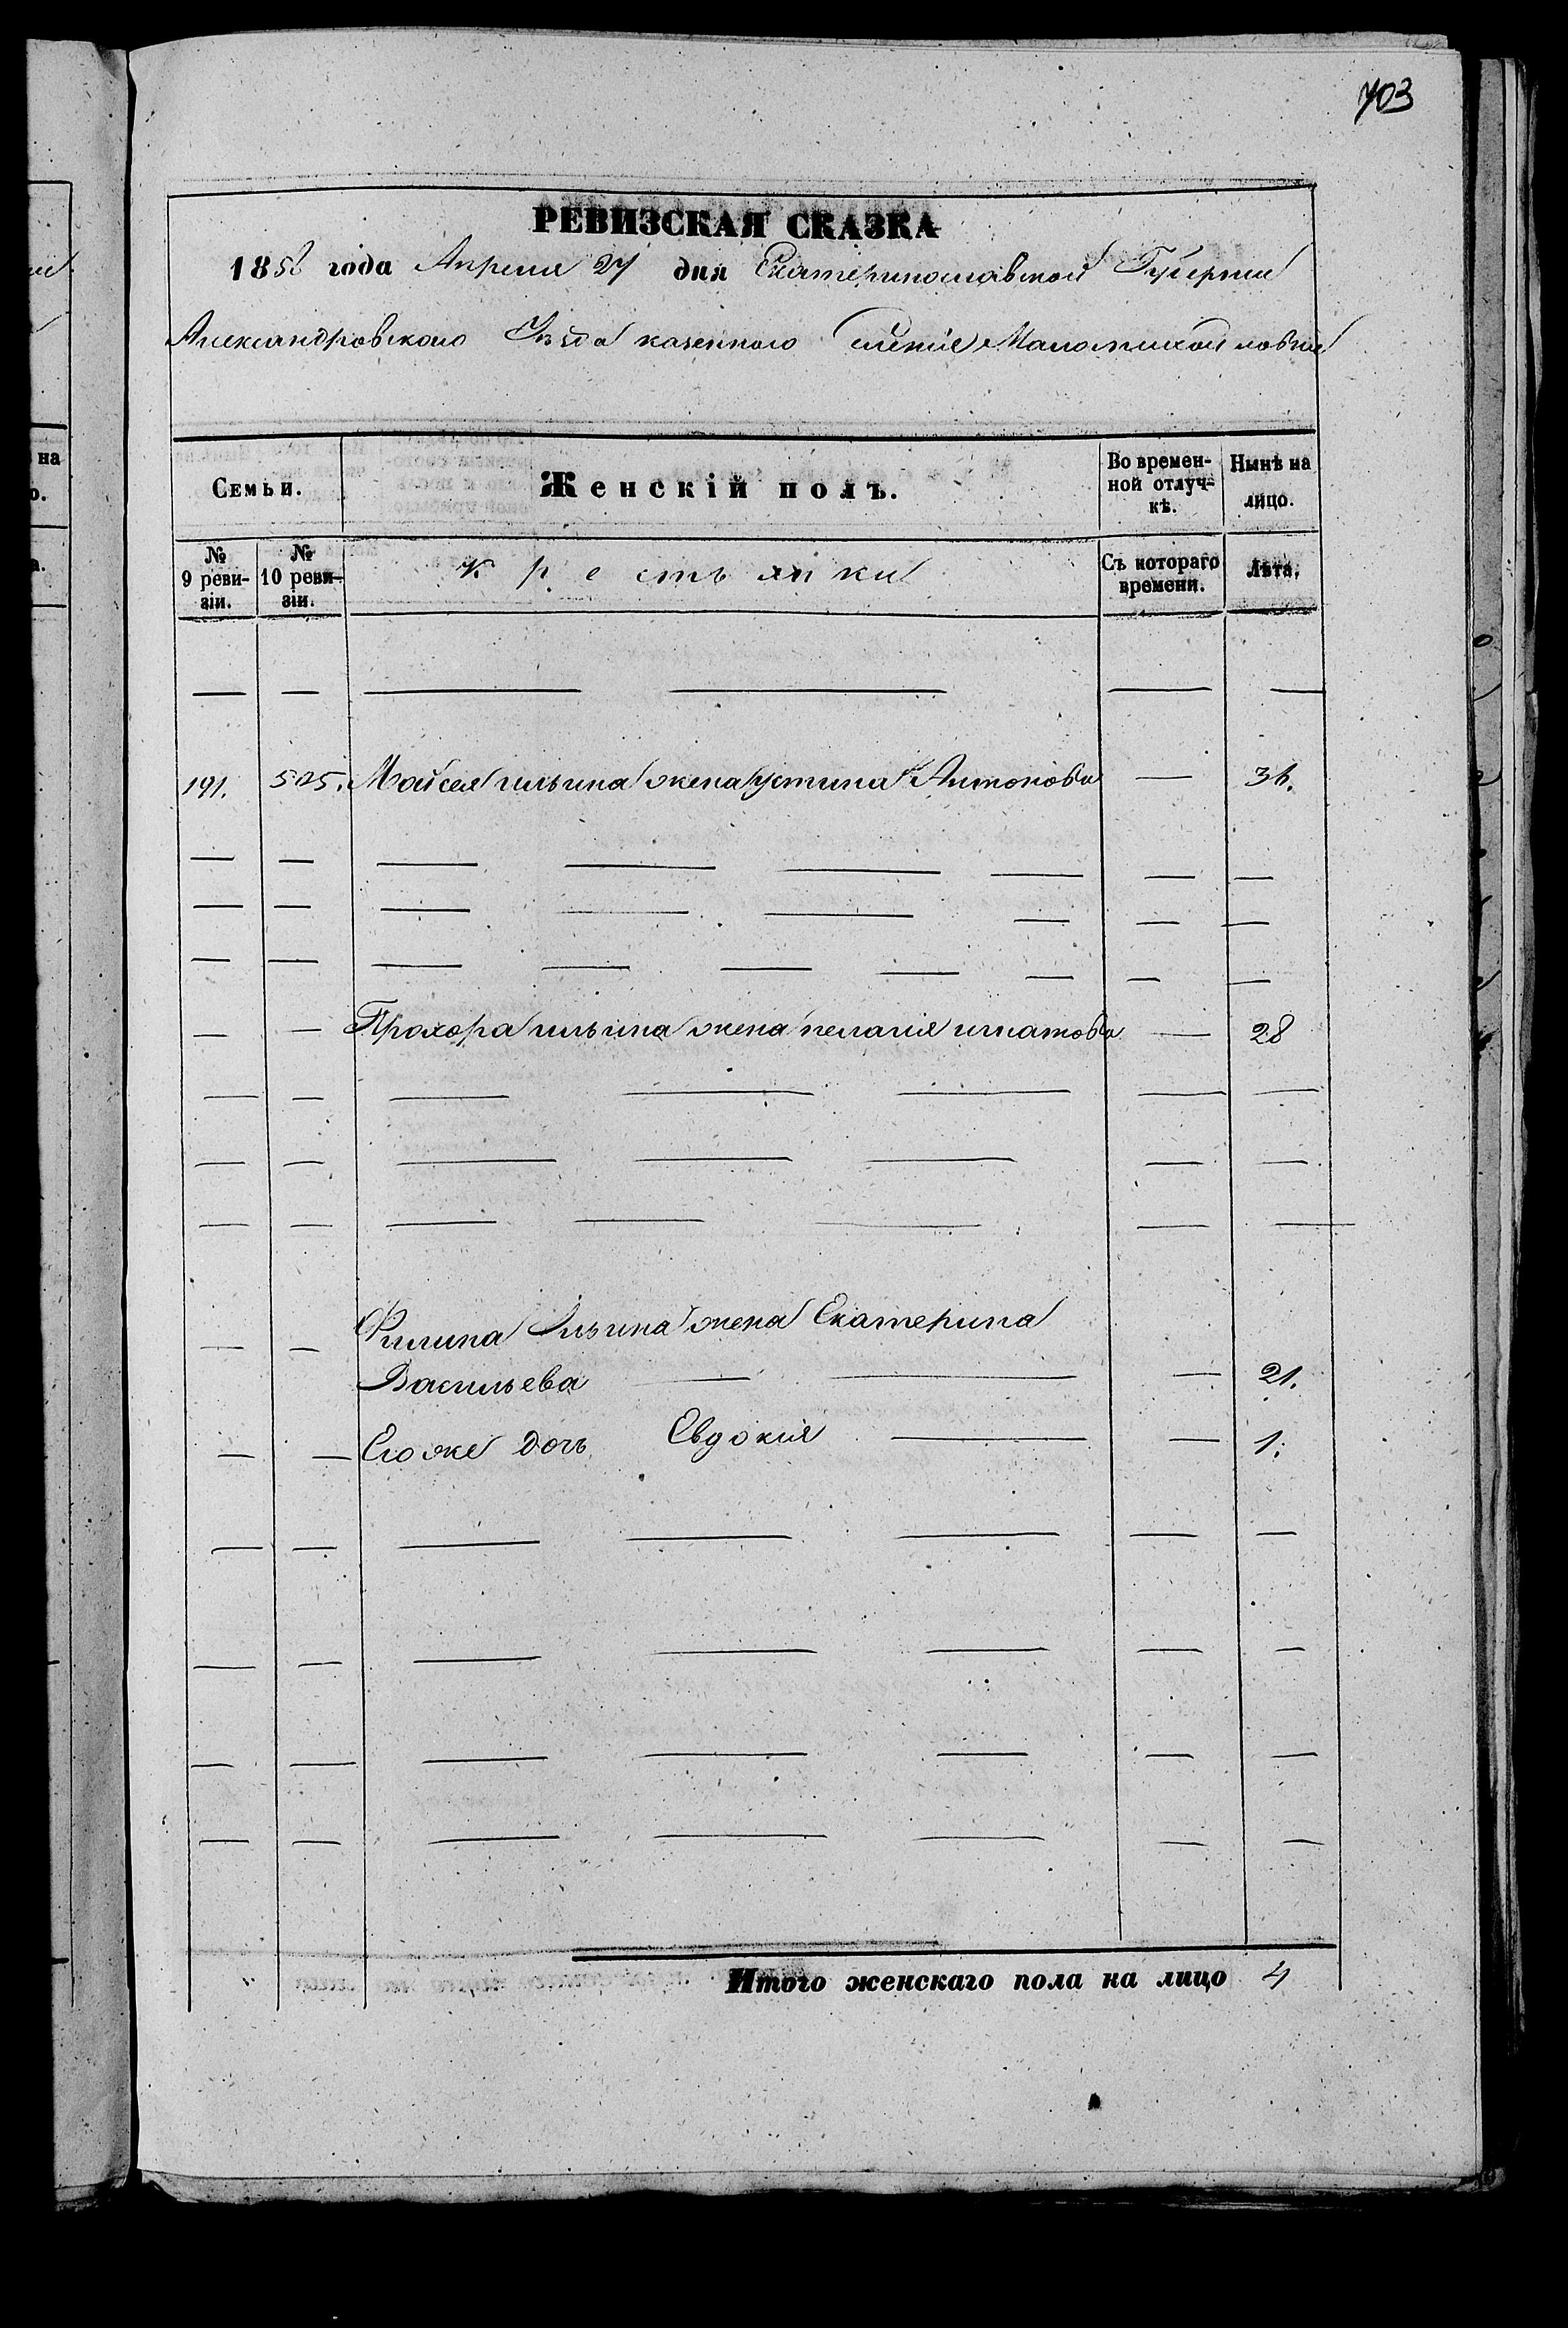 703
РЕВИЗСКАЯ СКАЗКА
1858 года Апреля 27 дня Екатеринославской Губернии
Александровского Уѣзда казенного селенія Маломихайловки
Семьи. Женскій полъ. Во времен-ной отлуч-кѣ. Нынѣ на лицо.
№ 9 реви-зіи. № 10 реви-зіи. крестьянки Съ котораго времени. Лѣта.
— — — — — —
191. 525. Мойсея ильина жена устина Антонова — 36.
— — — — — — — —
— — — — — — — —
— — — — — — — — —
— — Прохора ильина жена пелагия игнатова — 28
— — — — — — —
— — — — — — —
— — — — — — —
— — Филипа Ильина жена Екатерина
Васильева — — — 21.
— — Его же дочь Евдокия — — 1.
— — — — — — —
— — — — — — —
— — — — — — —
— — — — — — —
Итого женскаго пола на лицо 4
на
о.
а.